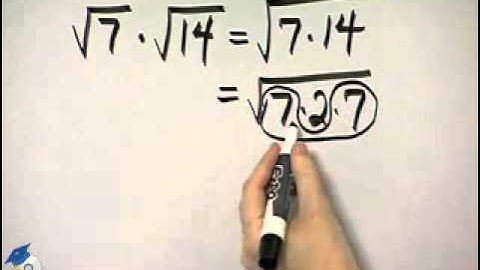 √7 · √14 = √7·14
= √7·2·7